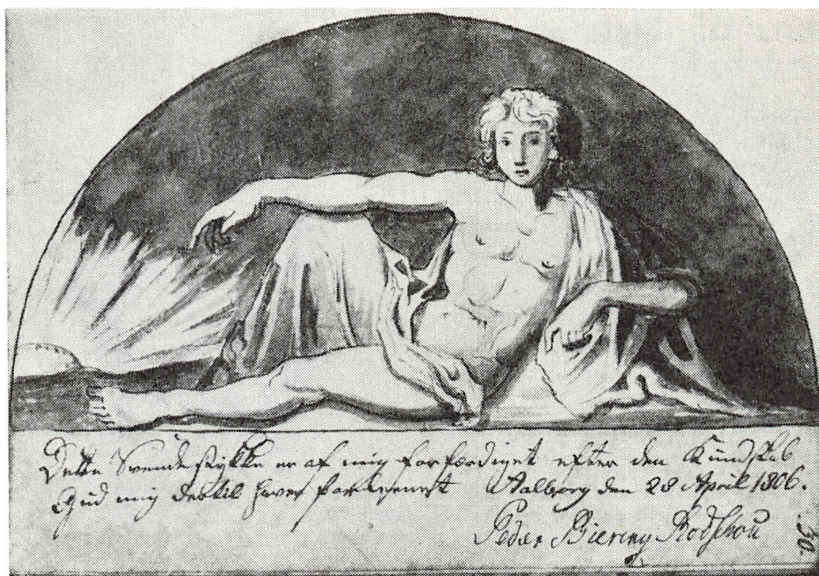 Dette Svendestÿkke er af mig forfærdiget efter den Kundskab
Gud mig dertil haver forleenet Aalborg den 28 April 1806.
Peder Biering Rodschou
30.